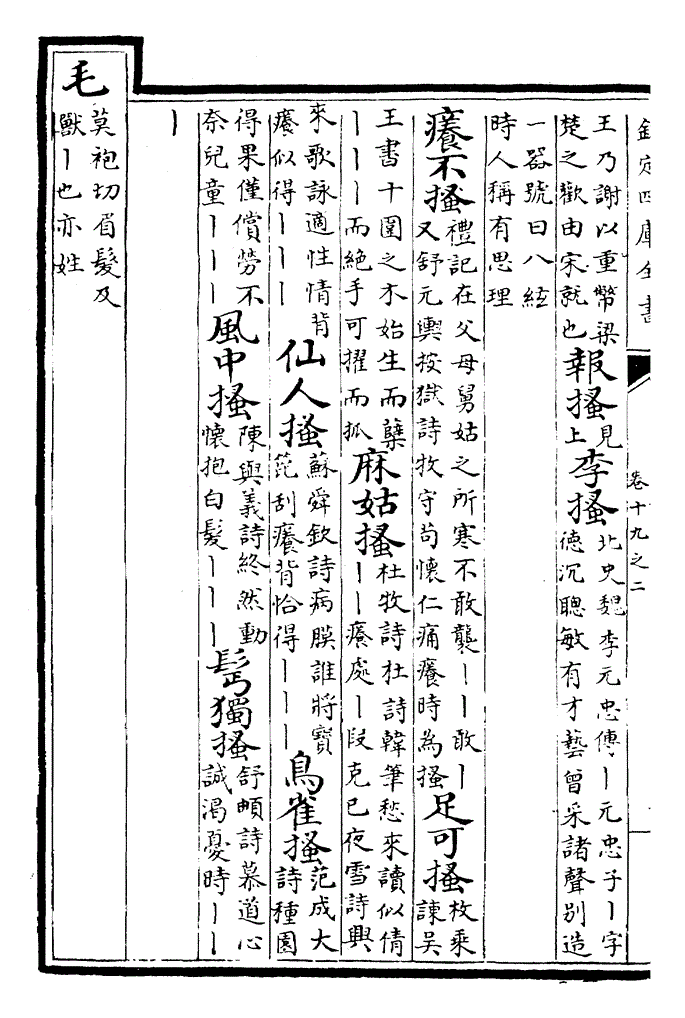 欽定四庫全書 卷十九之二
王乃謝以重幣梁楚之歡由宋就也 報搔 見上 李搔 北史魏李元忠傳丨元忠子丨字德沉聰敏有才藝曾采諸聲别造
一器號曰八絃時人稱有思理
癢不搔 禮記在父母舅姑之所寒不敢襲丨丨敢丨又舒元輿按獄詩牧守苟懷仁痛癢時為搔 足可搔 枚乘諫吳
王書十圍之木始生而蘖丨丨丨而絶手可擢而抓 麻姑搔 杜牧詩杜詩韓筆愁來讀似倩丨丨癢處丨段克已夜雪詩興
來歌詠適性情背癢似得丨丨丨 仙人搔 蘇舜欽詩病膜誰將寶篦刮癢背恰得丨丨丨 鳥雀搔 范成大詩種園
得果僅償勞不奈兒童丨丨丨 風中搔 陳與義詩終然動懷抱白髮丨丨丨 髩獨搔 舒頔詩慕道心誠渴憂時丨丨
丨
毛 莫袍切眉髮及獸丨也亦姓